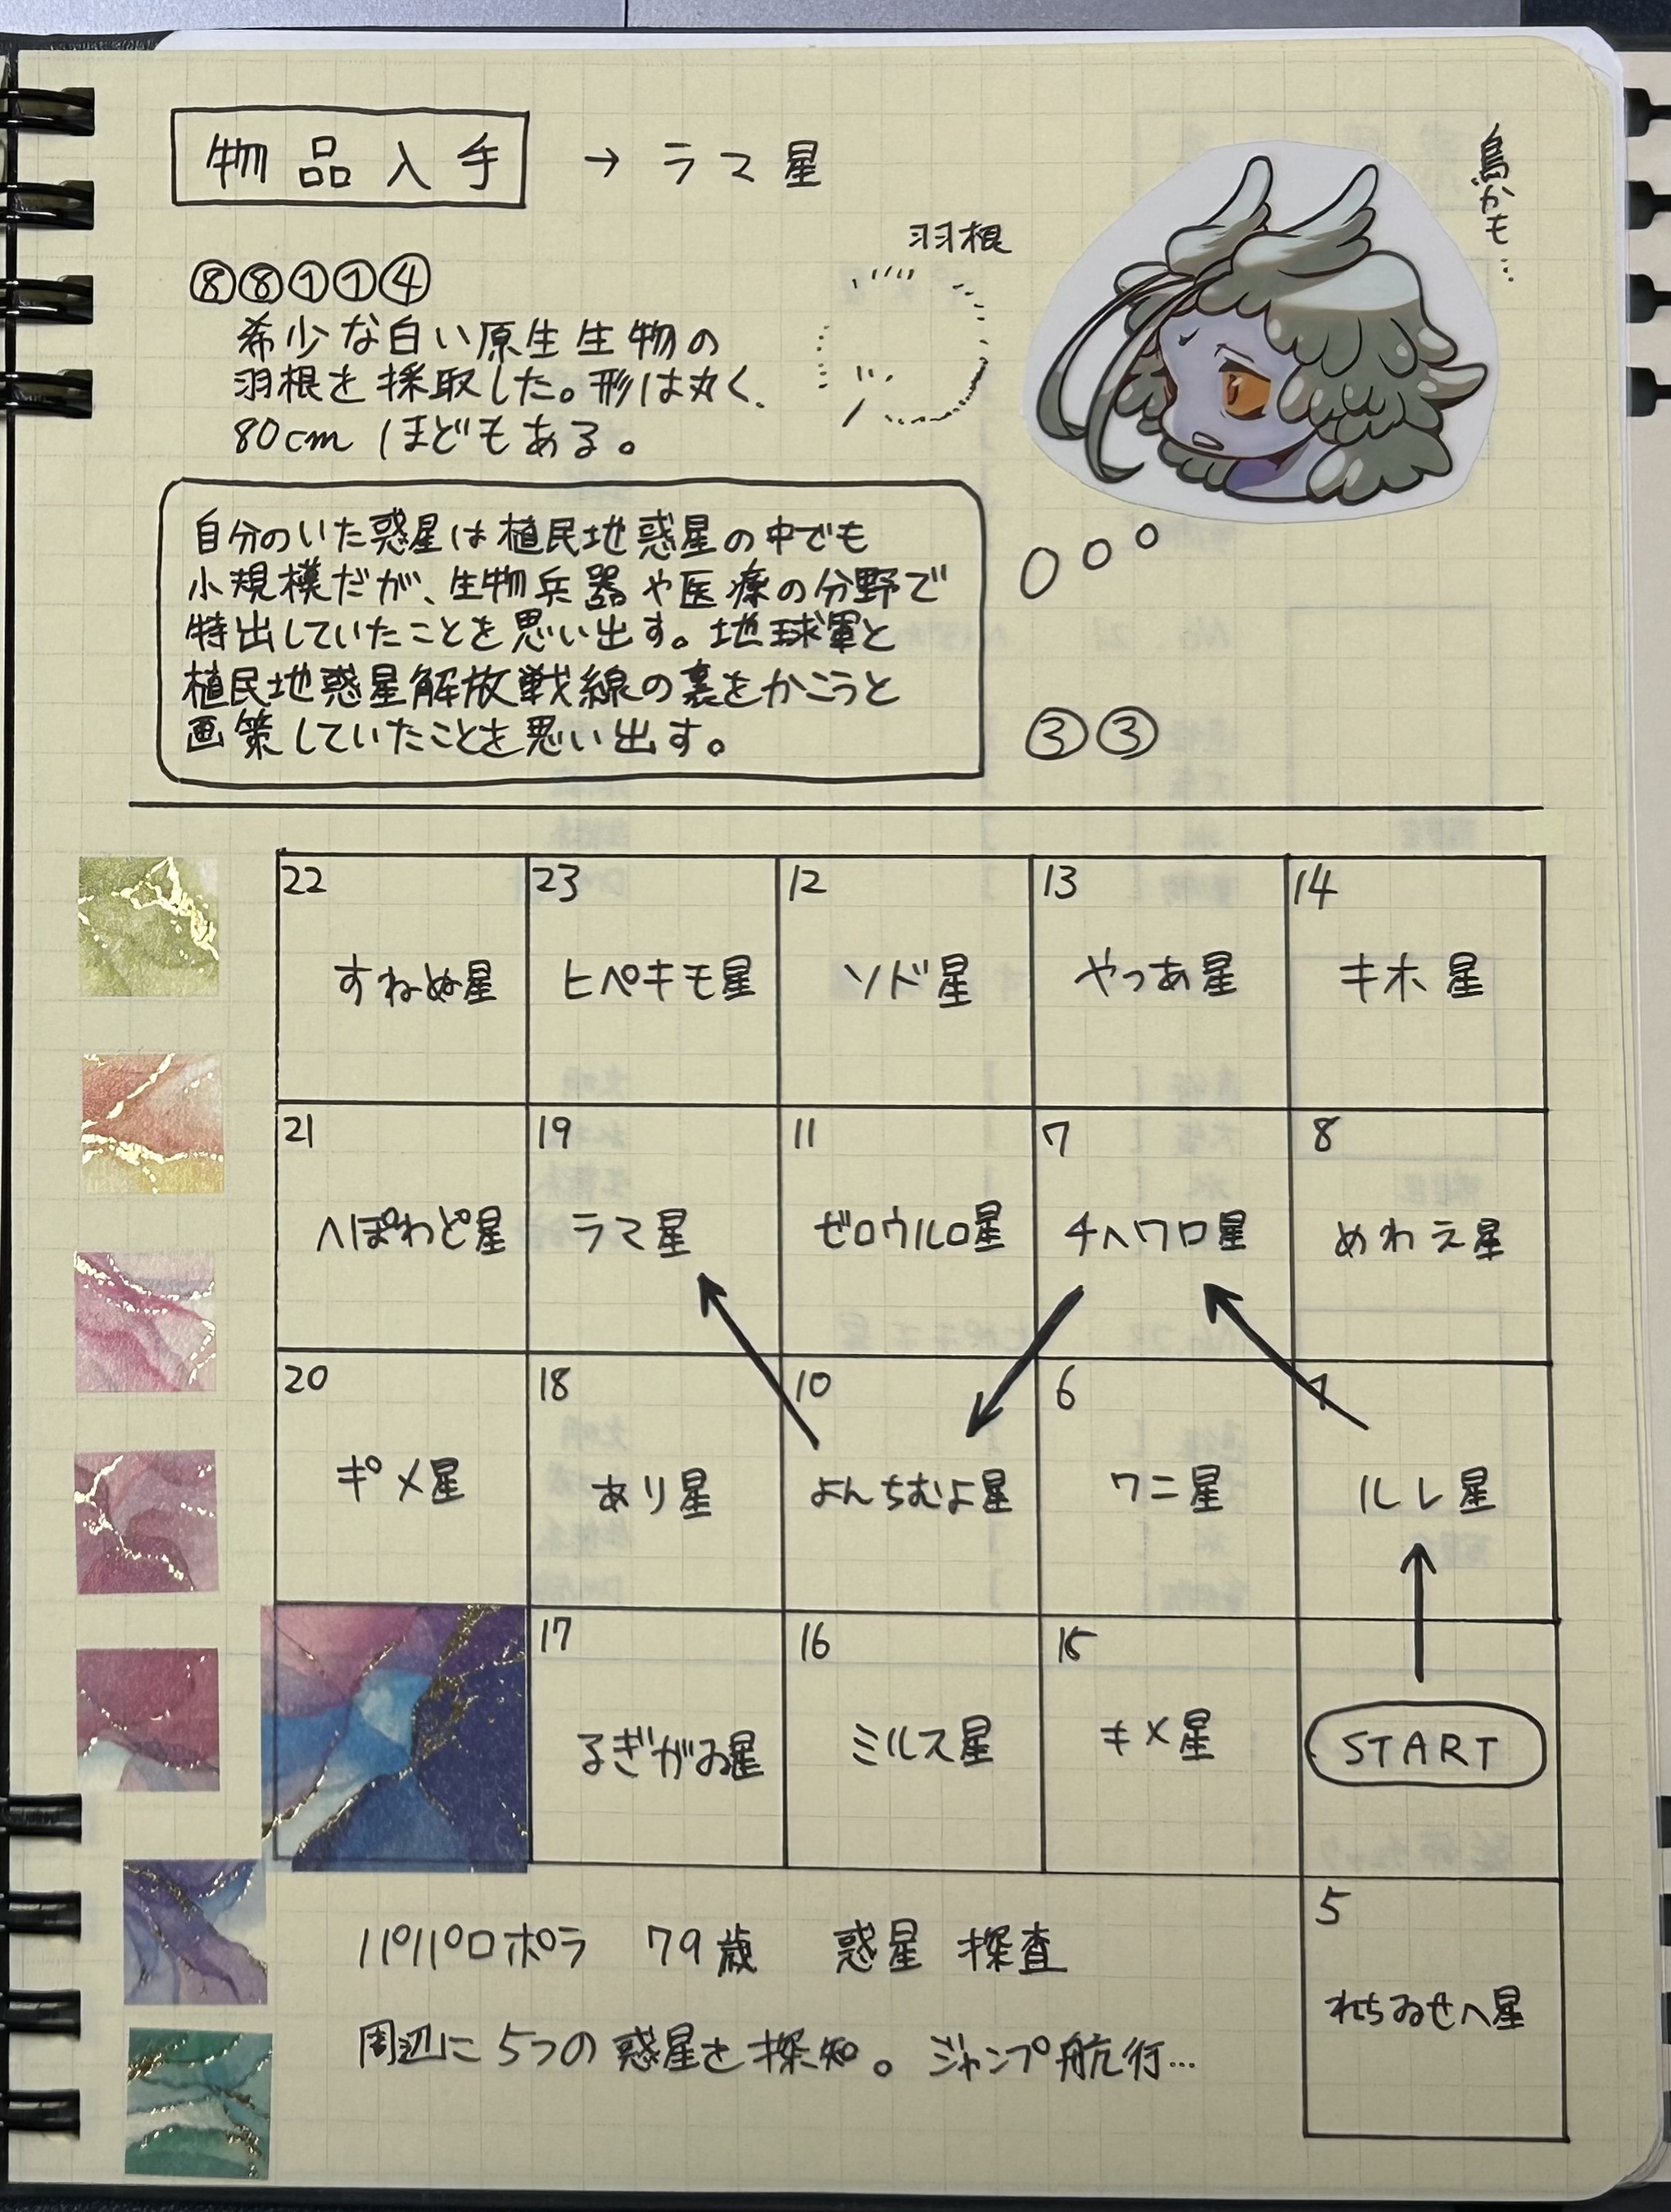 物品入手 → ラマ星
鳥かも…
羽根
⑧⑧①①④
希少な白い原生生物の
羽根を採取した。形は丸く、
80cmほどもある。
自分のいた惑星は植民地惑星の中でも
小規模だが、生物兵器や医療の分野で
特出していたことを思い出す。地球軍と
植民地惑星解放戦線の裏をかこうと
画策していたことを思い出す。
③③
22 すねぬ星
23 ヒペキモ星
12 ソド星
13 やつあ星
14 キホ星
21 へぽわど星
19 ラマ星
11 ゼロウルロ星
7 チヘワロ星
8 めわえ星
20 ギメ星
18 あり星
10 よんちむよ星
6 ワニ星
1 ルレ星
17 るぎがゐ星
16 ミルス星
15 キメ星
START
5 れちゐせへ星
パパロポラ 79歳 惑星探査
周辺に5つの惑星を探知。ジャンプ航行…